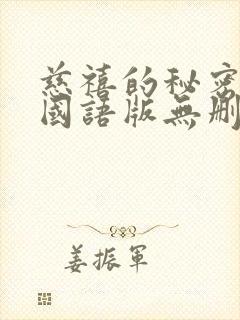 慈禧的秘密
國語版無刪
姜振軍